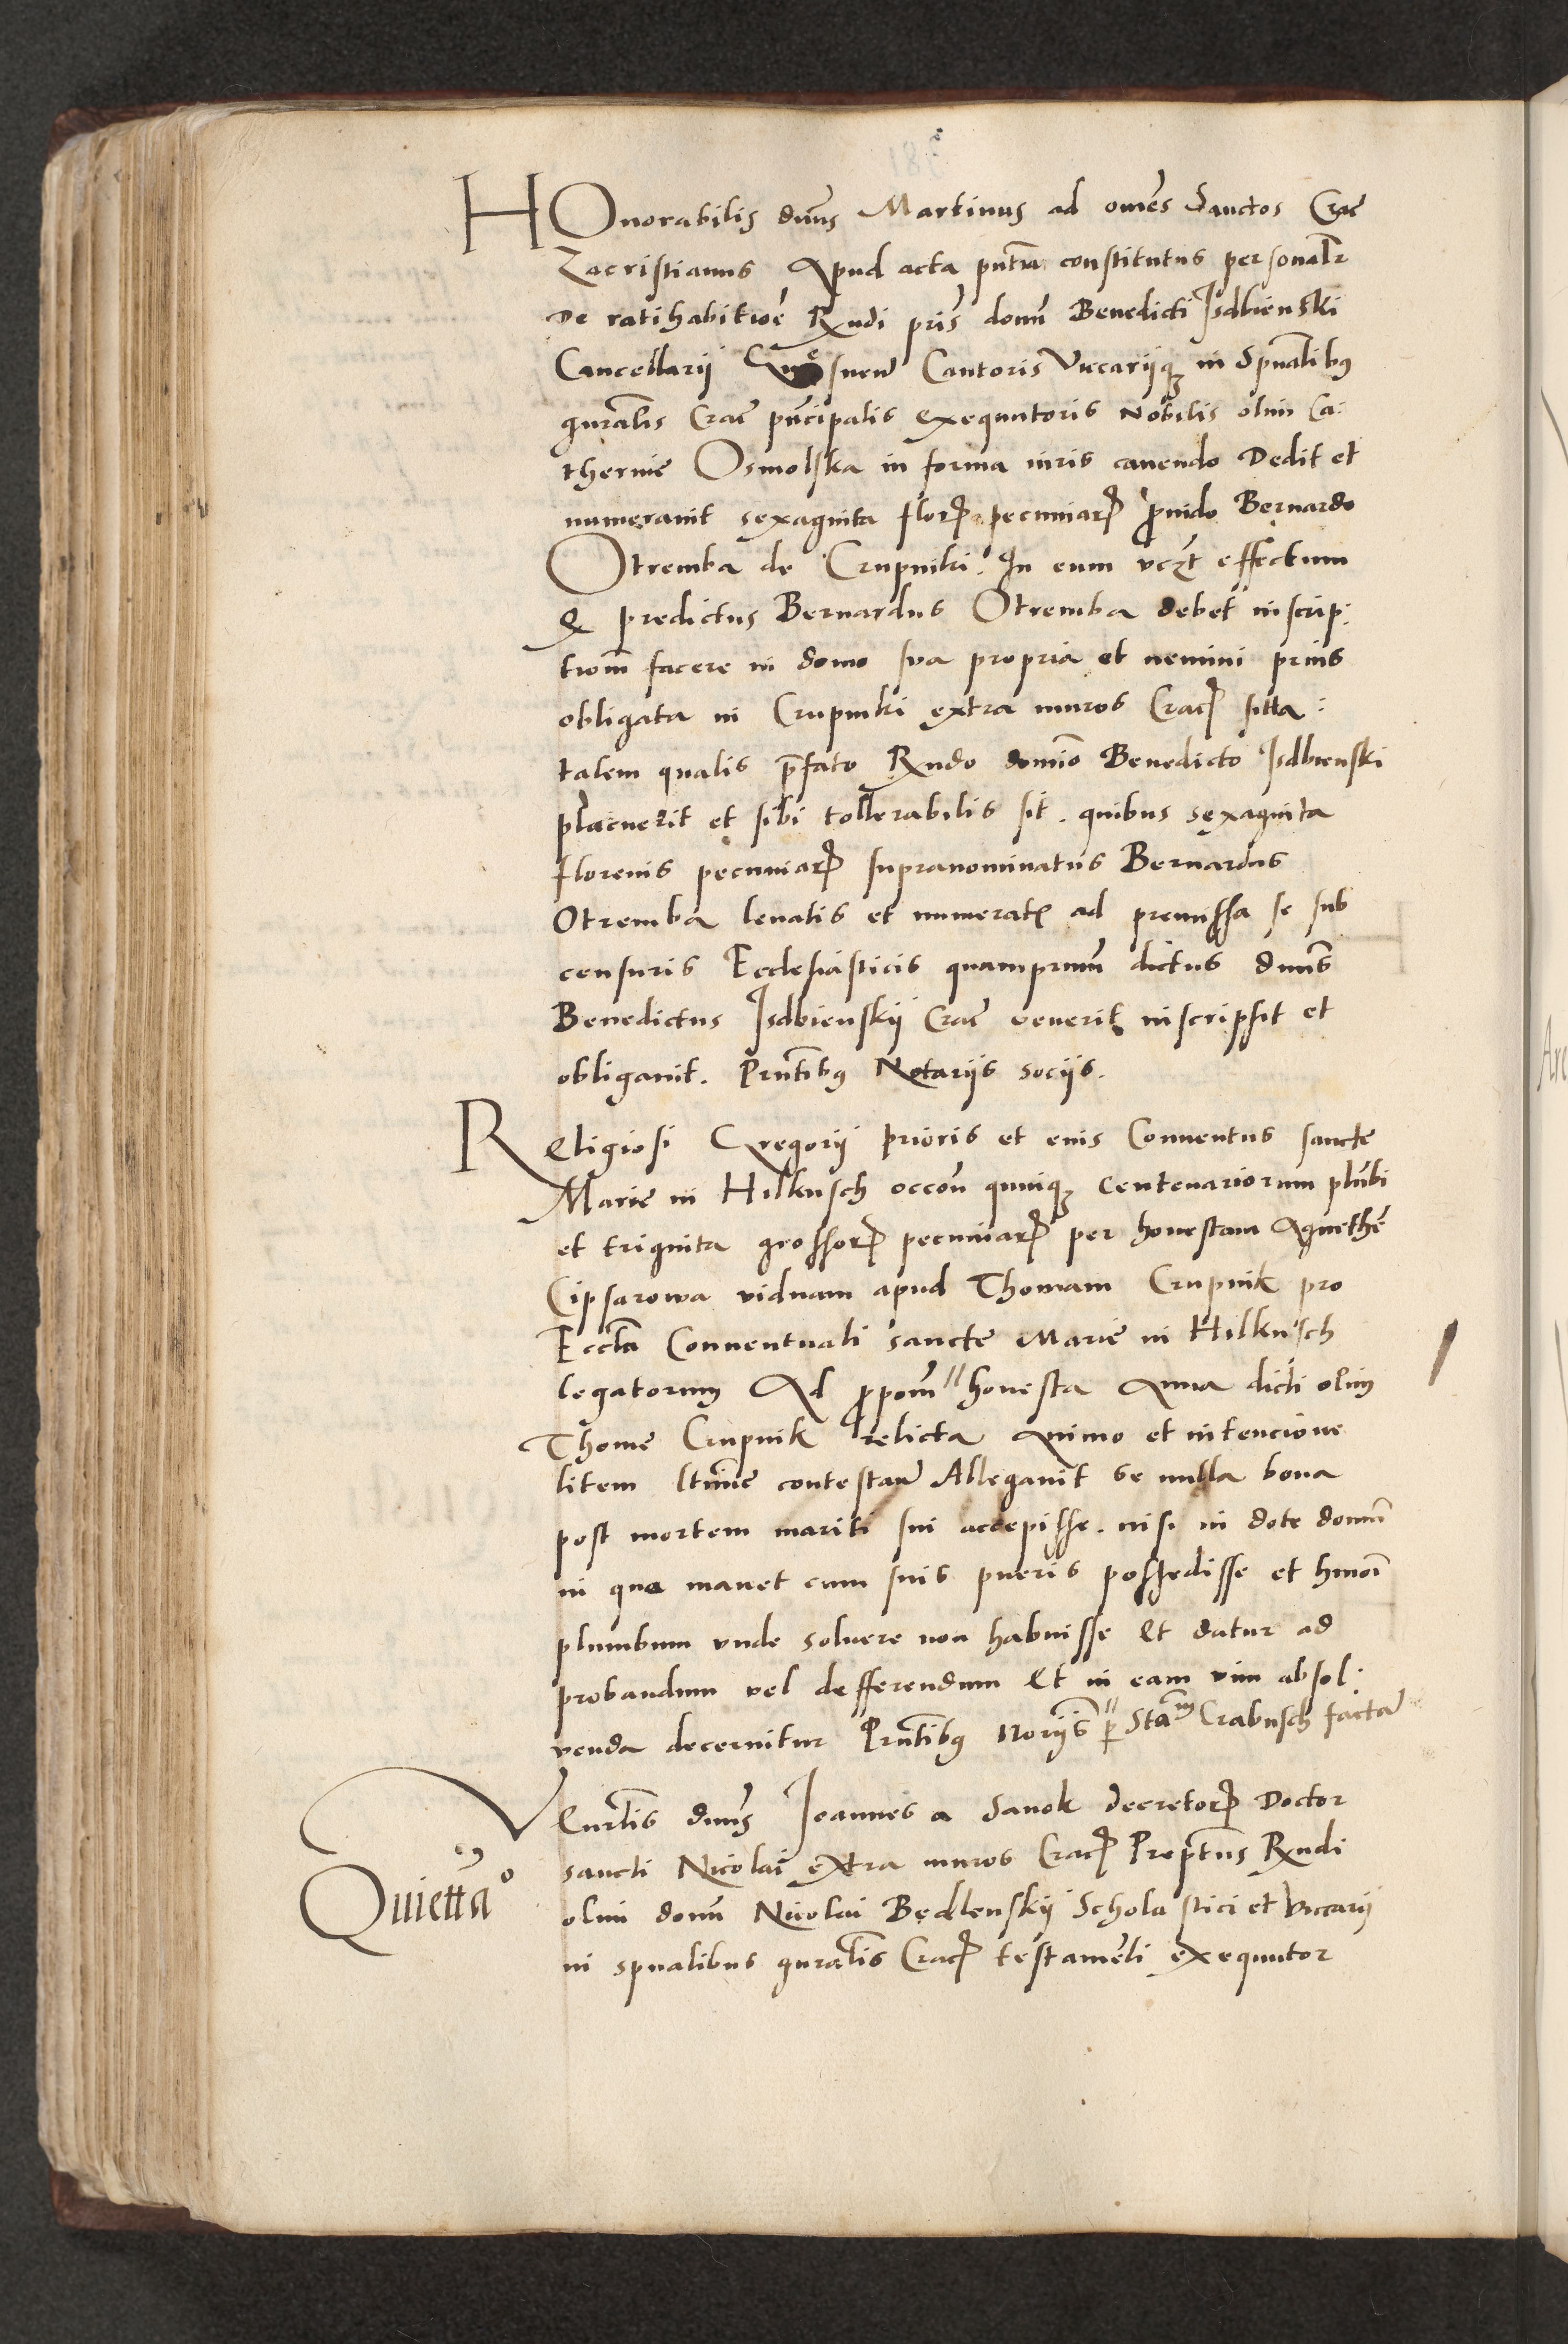 HOnorabilis dnus Martinus ad omnes Sanctos Crac
Zacristianus Apud acta pntia constitutus personalr
De ratihabitioe Rndi pris domi Benedicti Isdbienski
Cancellarii Gnesnen Cantoris Viccariiq in Spualibus
gnralis Crac pncipalis exequutoris Nobilis olim Ca:
therine Osmolska in forma iuris cauendo Dedit et
numerauit sexaginta flor pecuniar prouido Bernardo
Otremba de Crupniki. In eum vczt effectum
Q predictus Bernardus Otremba debet inscrip:
tiom facere in domo sua propria et nemini prius
obligata in Crupniki extra muros Crac sitta:
talem qualis prefato Rndo domino Benedicto Isdbienski
placuerit et sibi tollerabilis sit. quibus sexaginta
florenis pecuniar supranominatus Bernardus
Otremba leuatis et numeratis ad premissa se sub
censuris Ecclesiasticis quamprimum dictus dnus
Benedictus Isdbienskij Crac venerit inscripsit et
obligauit. Pntibus Notariis sociis.
Religiosi Gregorii prioris et eius Conuentus sancte
Marie in Hilkusch occon quinq Centenariorum plumbi
et triginta grossor pecuniar per honestam Agnethe
Cipsarowa viduam apud Thomam Crupnik pro
Eccla Conuentuali sancte Marie in Hilkusch
legatorum Ad ppom honesta Anna dicti olim
Thome Crupnik relicta Animo et intencione
litem ltime contestan Allegauit se nulla bona
post mortem mariti sui accepisse. nisi in dote domum
in qua manet cum suis pueris possedisse et hmoi
plumbum vnde soluere non habuisse Et datur ad
probandum vel defferendum Et in eam vim absol:
uenda decernitur Pntibus Noriis p Stam Crabusch factam
VEnrlis dnus Joannes a Sanok decretor Doctor
sancti Nicolai extra muros Crac Preptus Rndi
olim domi Nicolai Bedlenskij Scholastici et Viccarii
in spualibus gnralis Crac testamenti exequutor
Quiettao